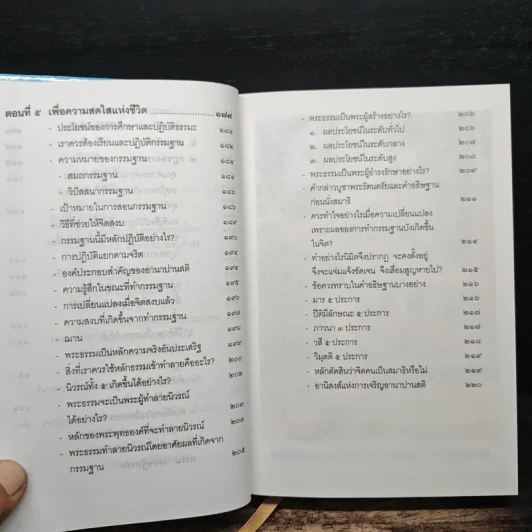 ตอนที่ ๕ เพื่อความสดใสแห่งชีวิต ๑๗๙
- ประโยชน์ของการศึกษาและปฏิบัติธรรมะ ๑๘๑
- เราควรต้องเรียนและปฏิบัติกรรมฐาน ๑๘๒
- ความหมายของกรรมฐาน ๑๘๔
- สมถกรรมฐาน ๑๘๔
- วิปัสสนากรรมฐาน ๑๘๖
- เป้าหมายในการสอนกรรมฐาน ๑๘๖
- วิธีที่ช่วยให้จิตสงบ ๑๘๙
- กรรมฐานนี้มีหลักปฏิบัติอย่างไร? ๑๙๐
- การปฏิบัติแยกตามจริต ๑๙๔
- องค์ประกอบสำคัญของอานาปานสติ ๑๙๔
- ความรู้สึกในขณะที่ทำกรรมฐาน ๑๙๕
- การเปลี่ยนแปลงเมื่อจิตสงบแล้ว ๑๙๖
- ความสงบที่เกิดขึ้นจากทำกรรมฐาน ๑๙๗
- ฌาน ๑๙๘
- พระธรรมเป็นหลักความจริงอันประเสริฐ ๑๙๙
- สิ่งที่เราควรใช้หลักธรรมเข้าทำลายคืออะไร? ๒๐๑
- นิวรณ์ทั้ง ๕ เกิดขึ้นได้อย่างไร? ๒๐๒
- พระธรรมจะเป็นพระผู้ทำลายนิวรณ์
ได้อย่างไร? ๒๐๓
- หลักของพระพุทธองค์ที่จะทำลายนิวรณ์ ๒๐๓
- พระธรรมทำลายนิวรณ์โดยอาศัยผลที่เกิดจาก
กรรมฐาน ๒๐๕
- พระธรรมเป็นพระผู้สร้างอย่างไร? ๒๐๖
๑. ผลประโยชน์ในระดับทั่วไป ๒๐๖
๒. ผลประโยชน์ในระดับกลาง ๒๐๗
๓. ผลประโยชน์ในระดับสูง ๒๐๘
- พระธรรมเป็นพระผู้ธำรงรักษาอย่างไร? ๒๐๙
- คำกล่าวบูชาพระรัตนตรัยและคำอธิษฐาน
ก่อนนั่งสมาธิ ๒๑๑
- ควรทำใจอย่างไรเมื่อความเปลี่ยนแปลง
เพราะผลของการทำกรรมฐานบังเกิดขึ้น
ในจิต? ๒๑๔
- ทำอย่างไรนิมิตจึงปรากฏ จะคงตั้งอยู่
จึงจะแจ่มแจ้งชัดเจน จึงเสื่อมสูญหายไป? ๒๑๕
- ข้อควรทราบในคำอธิษฐานบางอย่าง ๒๑๖
- มาร ๕ ประการ ๒๑๖
- ปีติมีลักษณะ ๕ ประการ ๒๑๗
- ภาวนา ๓ ประการ ๒๑๗
- วสี ๕ ประการ ๒๑๘
- วิมุตติ ๕ ประการ ๒๑๙
- หลักตัดสินว่าจิตคนเป็นสมาธิหรือไม่ ๒๑๙
- อานิสงส์แห่งการเจริญอานาปานสติ ๒๒๐